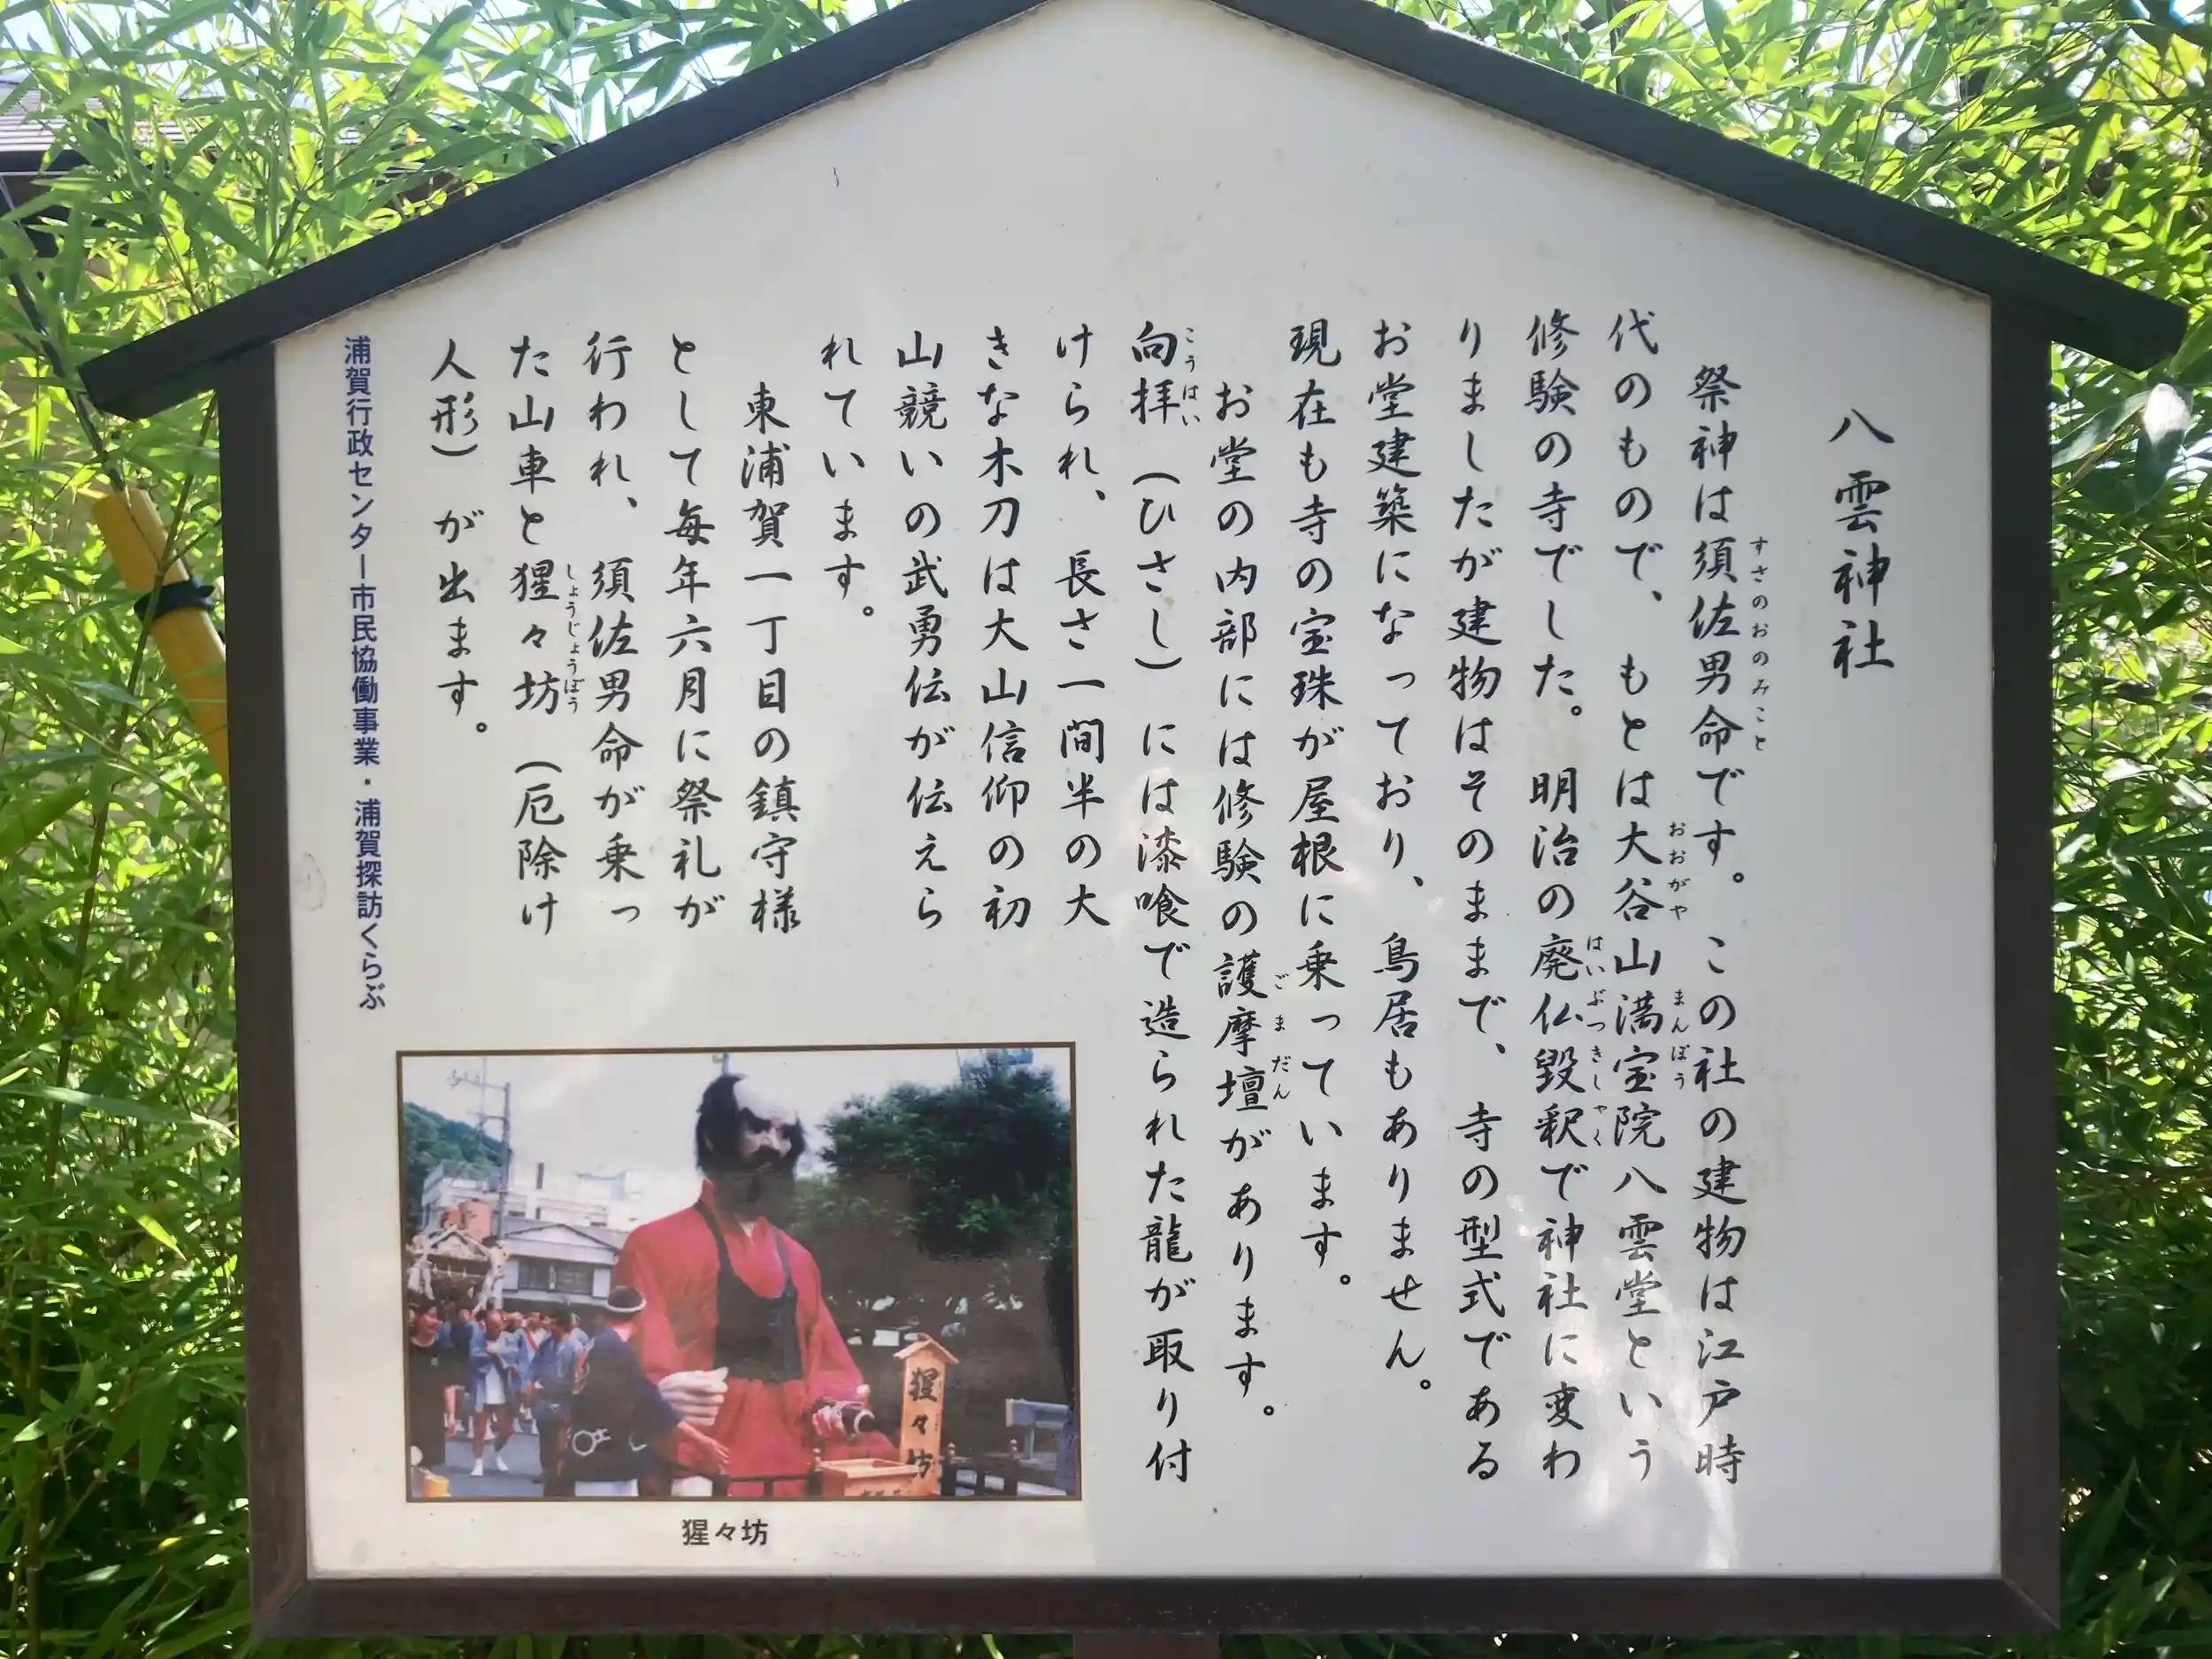 八雲神社
祭神は須佐男命です。この社の建物は江戸時
すさのおのみこと
代のもので、もとは大谷山満宝院八雲堂という
おおがや まんぼう
修験の寺でした。明治の廃仏毀釈で神社に変わ
はいぶつきしゃく
りましたが建物はそのままで、寺の型式である
お堂建築になっており、鳥居もありません。
現在も寺の宝珠が屋根に乗っています。
お堂の内部には修験の護摩壇があります。
ごまだん
向拝(ひさし)には漆喰で造られた龍が取り付
こうはい
けられ、長さ一間半の大
きな木刀は大山信仰の初
山競いの武勇伝が伝えら
れています。
東浦賀一丁目の鎮守様
として毎年六月に祭礼が
行われ、須佐男命が乗っ
た山車と猩々坊(厄除け
しょうじょうぼう
人形)が出ます。
浦賀行政センター市民協働事業・浦賀探訪くらぶ
猩々坊
猩々坊